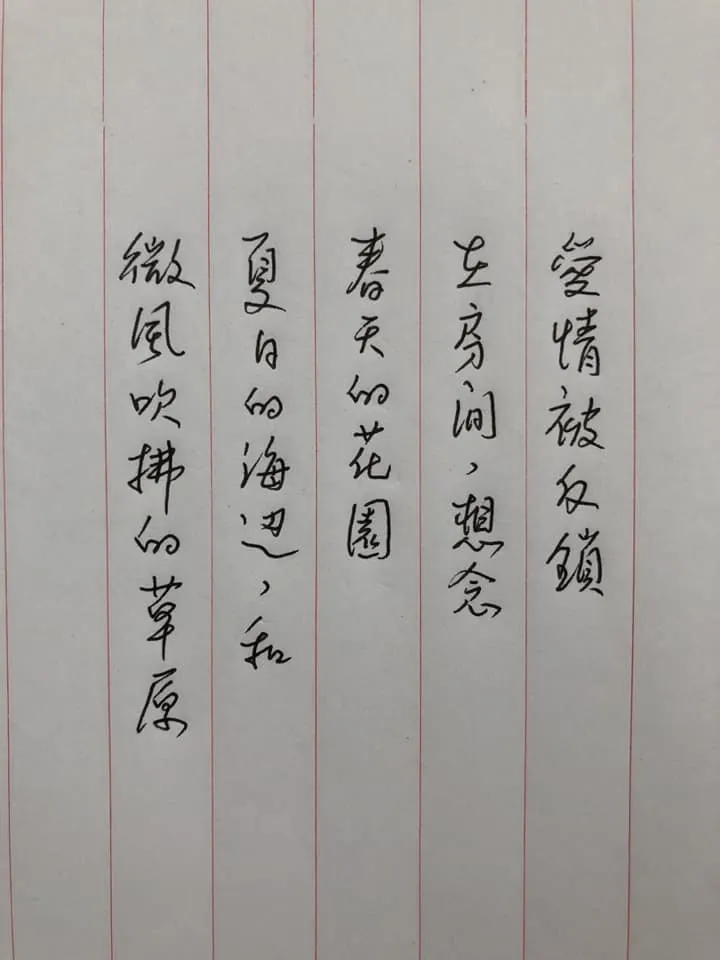 愛情被反鎖
在房间，想念
春天的花園
夏日的海边，和
微風吹拂的草原